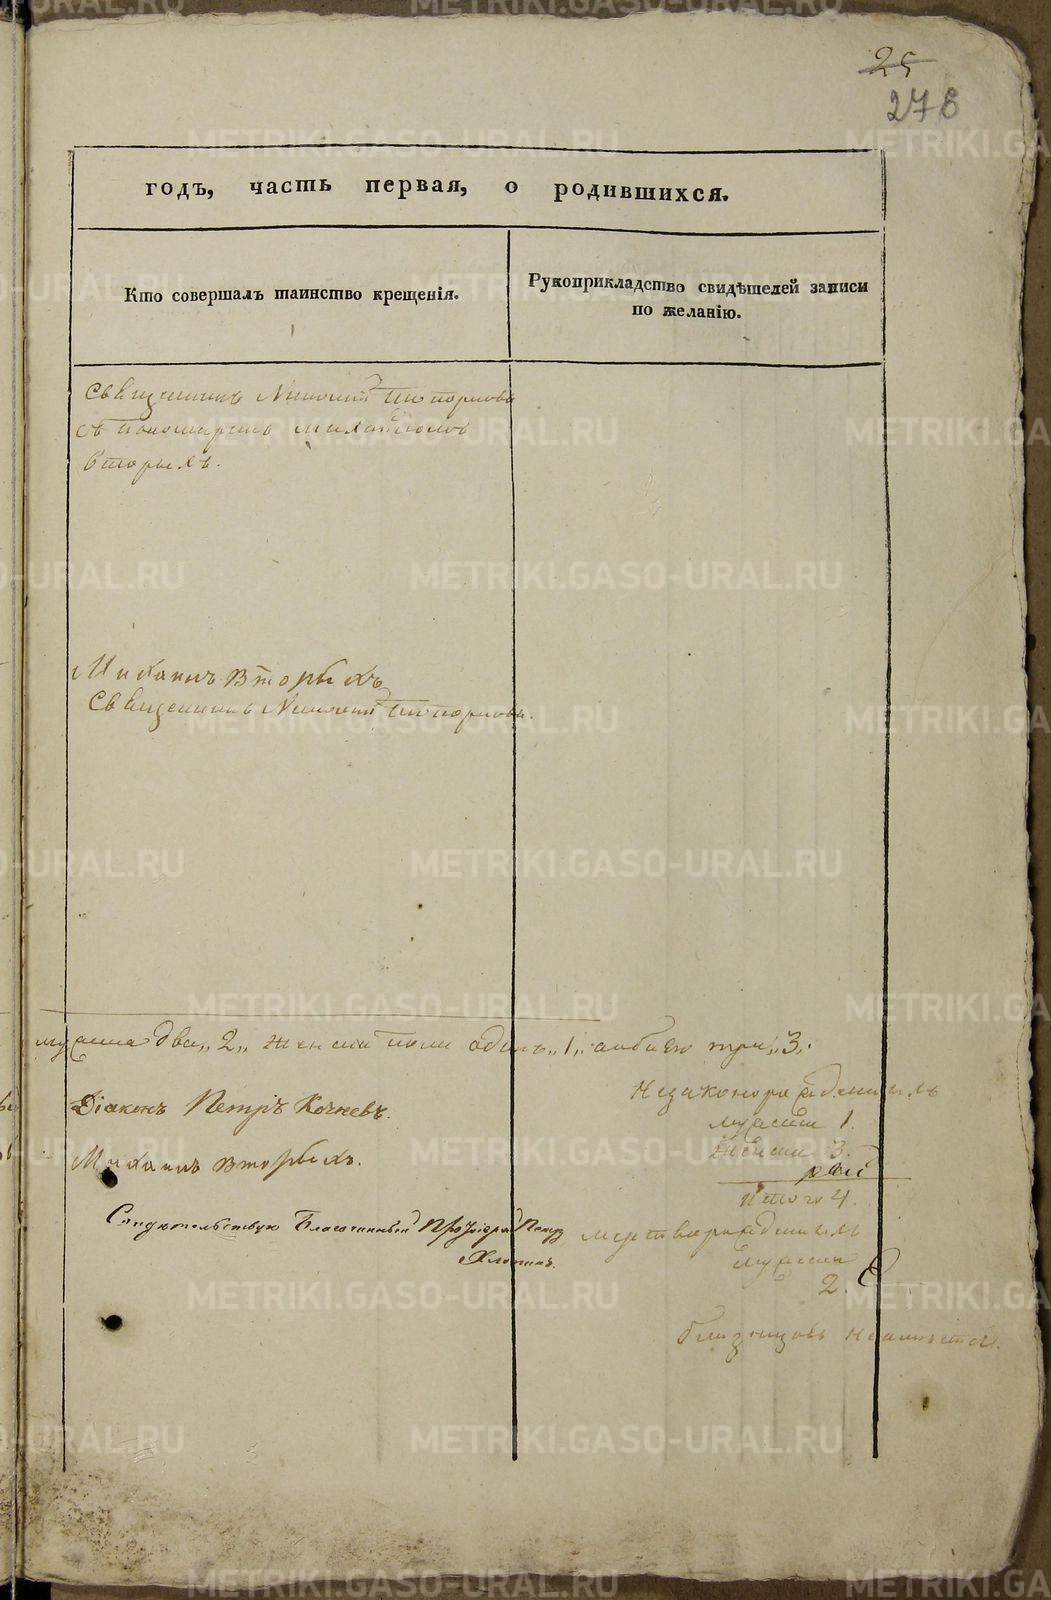 25
276
годъ, часть первая, о родившихся.
Кто совершалъ таинство крещенія.
Рукоприкладство свидѣтелей записи
по желанію.
Священникъ Николай Топорковъ
съ пономаремъ Михаиломъ
Вторыхъ.
Михаилъ Вторыхъ
Священникъ Николай Топорковъ.
мужеска два „2„ женска пола одинъ „1„ обоего три „3„.
Діаконъ Петръ Кочневъ.
Михаилъ Вторыхъ.
Свидѣтельствую Благочинный Протоіерей Петръ
Хлопинъ.
Незаконорожденныхъ
мужеск. 1.
женска 3.
итого 4.
мертворожденныхъ
мужеска
2.
близнецовъ
METRIKI.GASO-URAL.RU